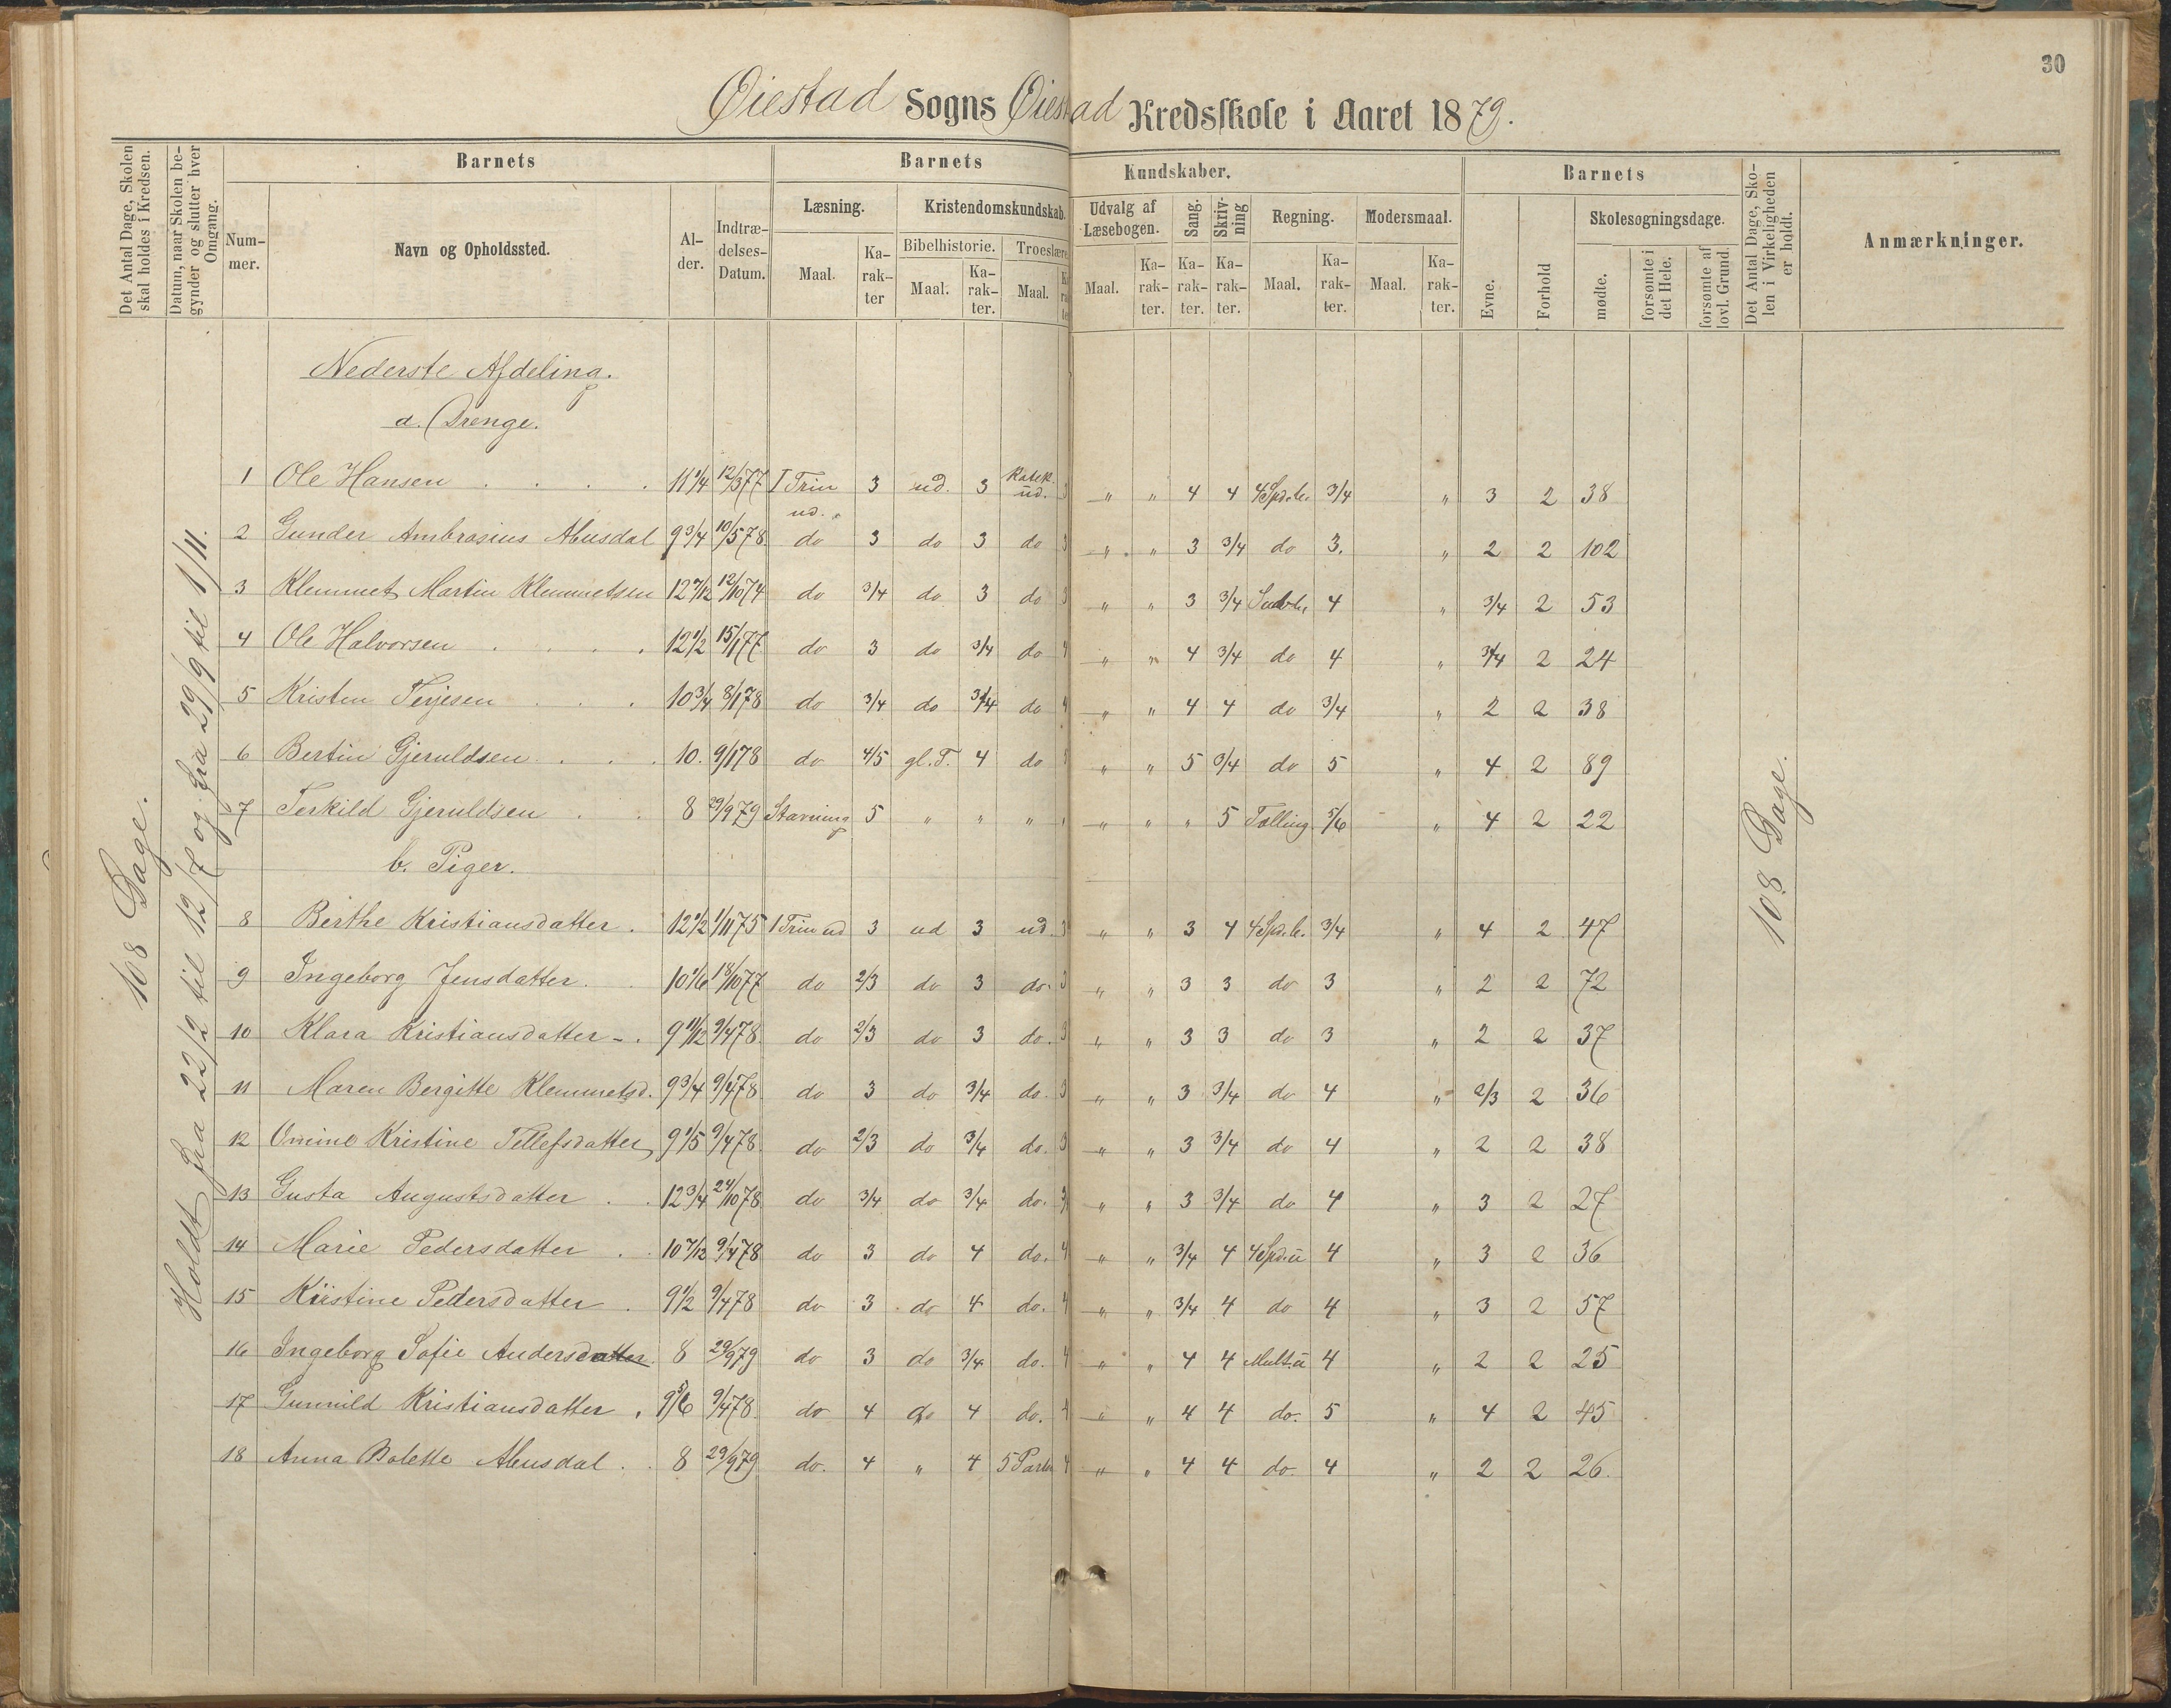 30
Øiestad Sogns Øiestad Kredsskole i Aaret 1879.
Det Antal Dage, Skolen skal holdes i Kredsen.
Datum, naar Skolen begynder og slutter hver Omgang.
Barnets
Nummer.
Navn og Opholdssted.
Alder.
Indtrædelses-Datum.
Barnets Kundskaber.
Læsning.
Maal.
Karakter
Kristendomskundskab.
Bibelhistorie.
Maal.
Karakter.
Troeslære
Maal.
Udvalg af Læsebogen.
Maal.
Karakter.
Sang.
Karakter.
Skrivning
Karakter.
Regning.
Maal.
Karakter.
Modersmaal.
Maal.
Karakter.
Barnets
Evne.
Forhold
Skolesogningsdage.
mødte.
forsømte i det Hele.
forsømte af lovl. Grund.
Det Antal Dage, Skolen i Virkeligheden er holdt.
Anmærkninger.
108 Dage.
Holdt fra 22/2 til 12/7 og fra 29/9 til 1/11.
108 Dage.
Nederste Afdeling.
a. Drenge.
1 Ole Hansen . . . . 11 1/4 12/3 77 I Trin ud. 3 ud. 3 Katek. ud. 3 " " 4 4 4 Sp. 3/4 " 3 2 38
2 Gunder Ambrosius Abusdal 9 3/4 10/5 78 do 3 do 3 do 3 " " 3 3/4 do 3. " 2 2 102
3 Klemmet Martin Klemmetsen 12 7/12 12/10 74 do 3/4 do 3 do 3 " " 3 3/4 4 " 3/4 2 53
4 Ole Halvorsen . . . . 12 1/2 15/1 77 do 3 do 3/4 do 4 " " 4 3/4 do 4 " 3/4 2 24
5 Kristen Terjesen . . . 10 3/4 8/1 78 do 3/4 do 3/4 do 4 " " 4 4 do 3/4 " 2 2 38
6 Bertin Gjeruldsen . . . 10. 9/1 78 do 4/5 gl. T. 4 do " " 5 3/4 do 5 " 4 2 89
7 Terkild Gjeruldsen . . 8 29/9 79 Stavning 5 " " " " " " " 5 Tælling 5/6 " 4 2 22
b. Piger.
8 Berthe Kristiansdatter . 12 1/2 1/11 75 I Trin ud 3 ud 3 ud. 3 " " 3 4 4 Sp. 3/4 " 4 2 47
9 Ingeborg Jensdatter . . 10 1/6 18/10 77 do 2/3 do 3 do. 3 " " 3 3 do 3 " 2 2 72
10 Klara Kristiansdatter - . 9 11/12 9/4 78 do 2/3 do 3 do. 3 " " 3 3 do 3 " 2 2 37
11 Maren Bergitte Klemmetsd. 9 3/4 9/4 78 do 3 do 3/4 do. 3 " " 3 3/4 do 4 " 2/3 2 36
12 Omine Kristine Tellefsdatter 9 1/5 9/4 78 do 2/3 do 3/4 do. 3 " " 3 3/4 do 4 " 2 2 38
13 Gusta Augustsdatter . . 12 3/4 24/10 78 do 3/4 do 3/4 do. " " 3 3/4 do 4 " 3 2 27
14 Marie Pedersdatter . . 10 7/12 9/4 78 do 3 do 4 do. 4 " " 3/4 4 4 Sp. u 4 " 3 2 36
15 Kristine Pedersdatter . 9 1/2 9/4 78 do 3 do 4 do. 4 " " 3/4 4 do 4 " 3 2 57
16 Ingeborg Sofie Andersdatter. 8 29/9 79 do 3 do 3/4 do. 4 " " 4 4 Mult. u 4 " 2 2 25
17 Gunnild Kristiansdatter . 9 5/6 9/4 78 do 4 do 4 do. 4 " " 4 4 do. 5 " 4 2 45
18 Anna Bolette Abusdal . . 8 29/9 79 do. 4 " 4 5 Parter 4 " " 4 4 do. 4 " 2 2 26.